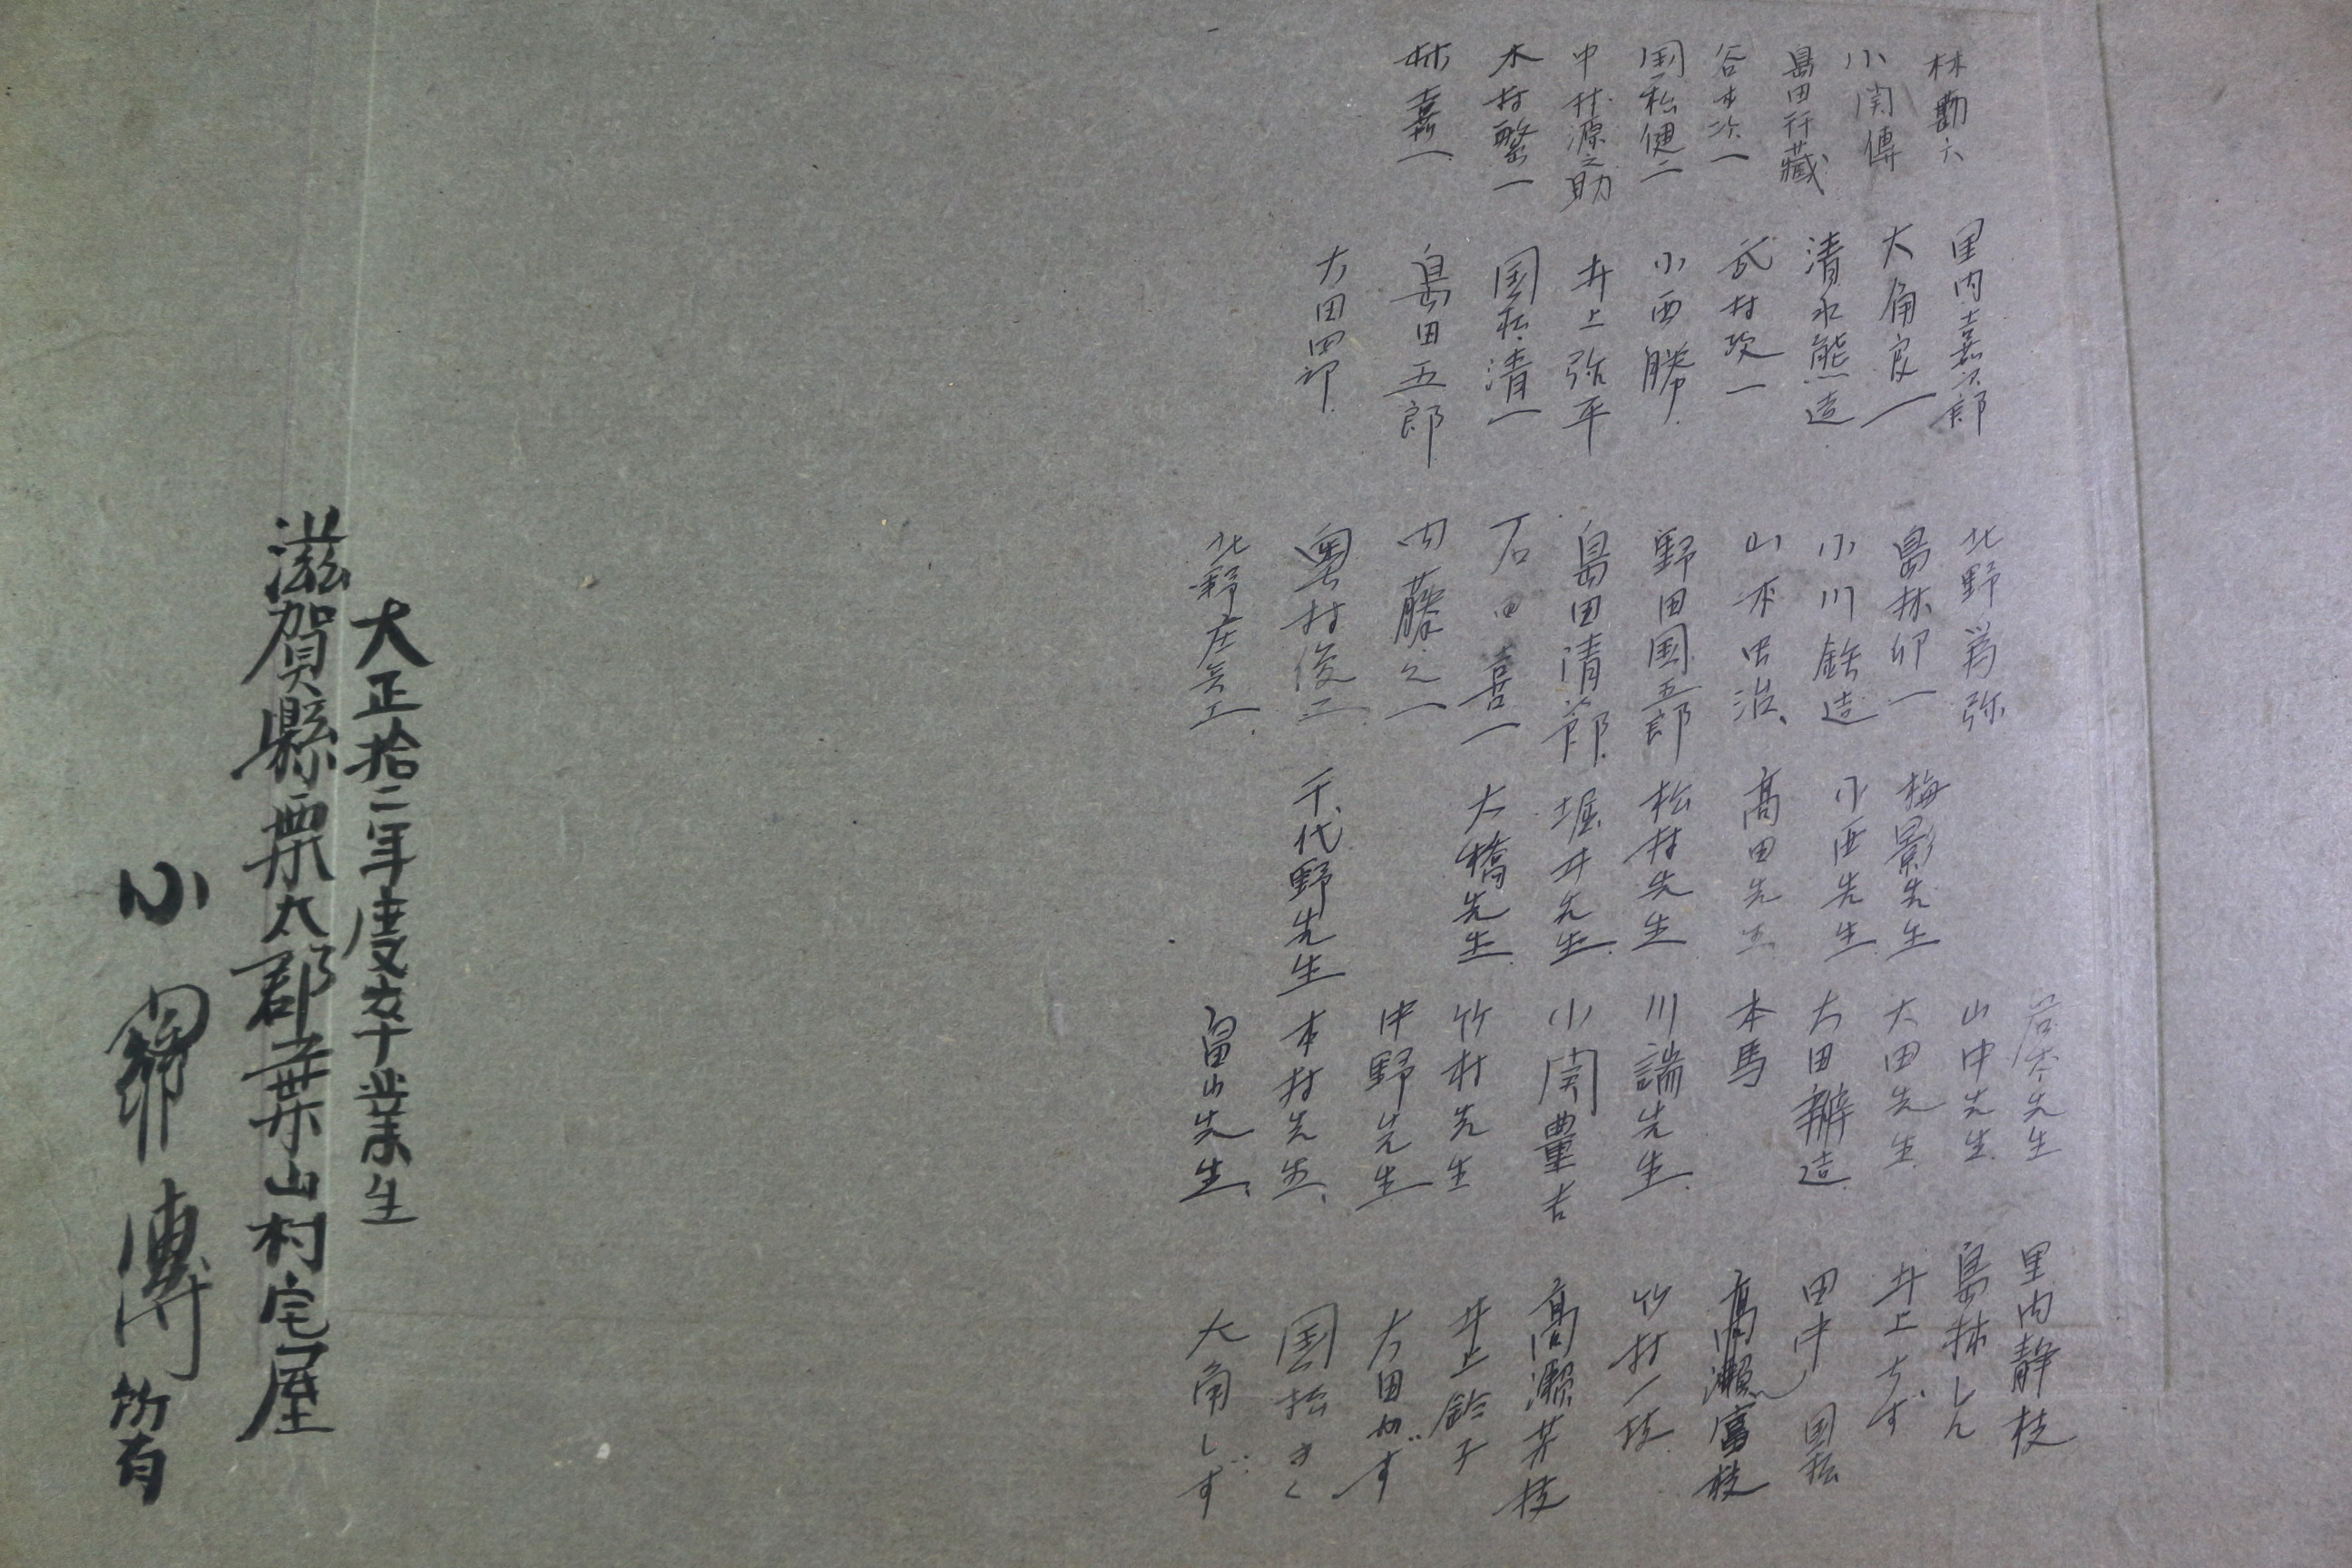 林勘六
小関傳
島田行藏
谷本次一
国松健二
中村源之助
木村繁一
林嘉一
里内嘉次郎
大角良一
清水熊造
武村政一
小西勝
井上弥平
国松清一
島田五郎
大田四郎
北野為弥
島林卯一
小川銈造
山本忠治
野田国五郎
島田清一郎
石田喜一
内藤之一
奥村俊三
北野庄兵エ
梅影先生
小西先生
高田先生
松村先生
堀井先生
大橋先生
千代野先生
先生
山中先生
大田先生
大田辦造
本馬
川端先生
小関豊吉
竹村先生
中野先生
本村先生
畠山先生
里内静枝
島林しん
井上すず
田中 国松
高瀬富枝
竹村一枝
高瀬芳枝
井上鈴子
大田かずす
国松きく
大角しず
大正拾二年度卒業生
滋賀縣栗太郡葉山村宅屋
小関傳所有